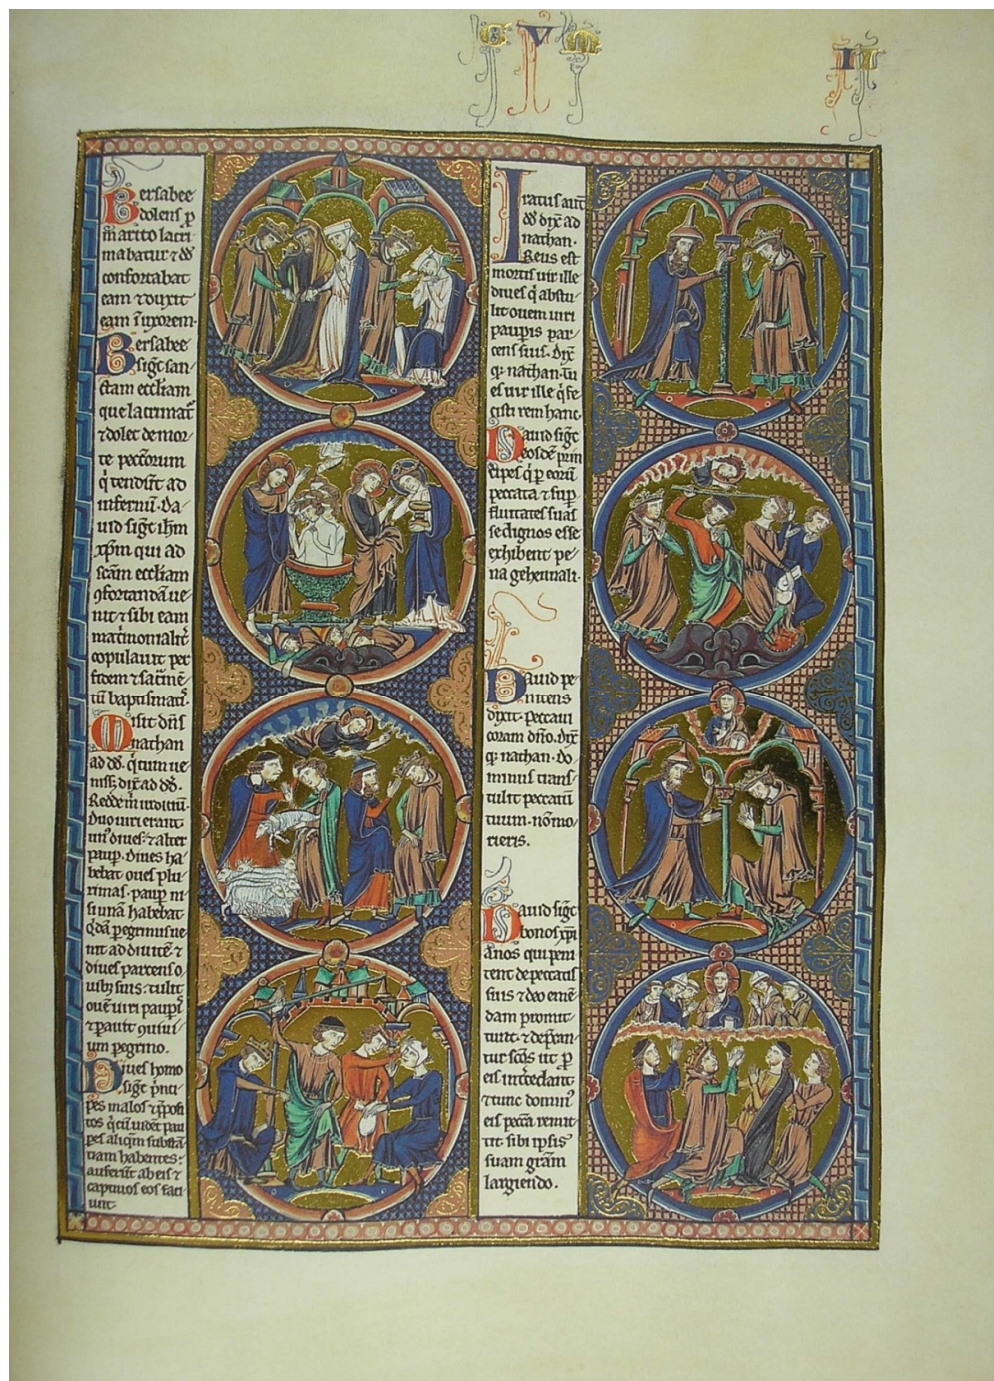 Bersabee
dolens p
marito lacri
mabatur ⁊ dd
confortabat
eam ⁊ duxit
eam ī uxorem.
Bersabee
sigᷓt san
ctam eccliam
que lacrimat᷑
⁊ dolet de mor
te pecc̄orum
q̇ tendūt ad
infernū. Da
uid sigᷓt ihm
xpm qui ad
scām eccliam
ꝯfortandā ue
nit ⁊ sibi eam
copulauit per
fidem ⁊ sacm̄e
tū baptismat᷑.
Misit dns
nathan
ad dd.
Duo uiri erant
un᷒ diues ⁊ alter
paup. diues ha
bebat oues plu
rimas. paup ni
si unā habebat.
Qdā pegrinus ue
nit ad diuitē ⁊
diues parcens o
uib᷒ suis. tulit
ouē uiri paupis
⁊ pauit
um pegrino.
Diues homo
sigᷓt pnci
pes malos
uident pau
tiam habentes:
auferūt ab eis ⁊
captiuos eos faci
unt.
Iratus aūt
dd dix̄ ad
nathan.
Reus est
mortis uir ille
diues q̇ abstu
lit ouem uiri
paupis par
cens suis. dix̄
q᷒ nathan. tu
es uir ille q̇ fe
cisti rem hanc.
Dauid sigᷓt
eosdē prin
cipes q̇ p eorū
peccata ⁊ sup
fluitates suas
se dignos esse
exhibent pe
na gehennali.
Dauid pe
nitens
dixit. peccaui
coram dno. dix̄
q᷒ nathan. do
minus trans
tulit peccatū
tuum. nō mo
rieris.
Dauid sigᷓt
bonos xpi
anos qui peni
tent de peccatis
suis ⁊ deo emē
dam promit
tunt. ⁊ depcan
tur scōs ut p
eis intcedant
⁊ tunc domin᷒
eis peccā remit
tit sibi ipsis
suam grām
largiendo.